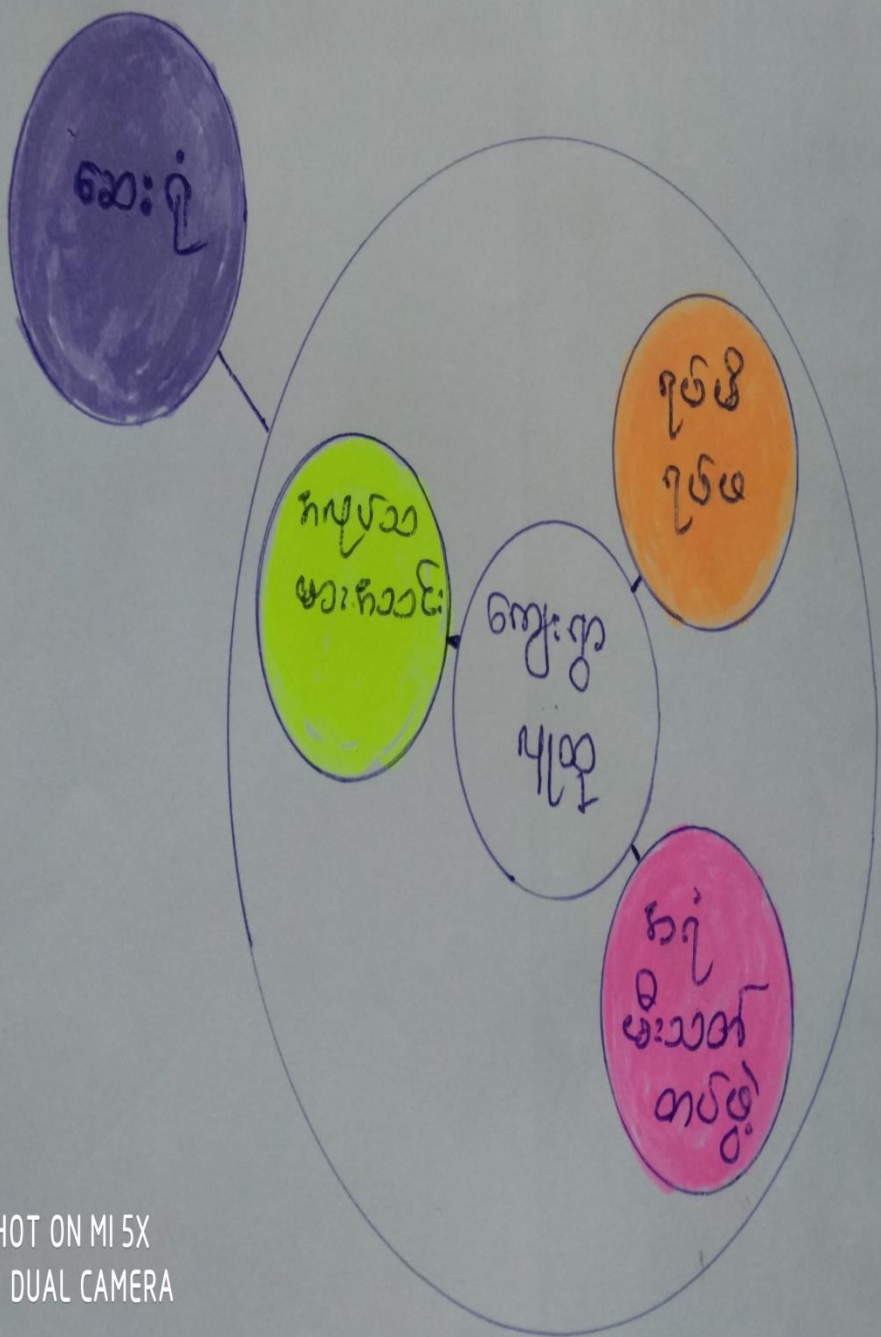 ဆေးရုံ
ရပ်မိ
ရပ်ဖ
အလုပ်သ
မားအသင်း
ကျေးရွာ
လူထု
အရံ
မီးသတ်
တပ်ဖွဲ့
SHOT ON MI 5X
DUAL CAMERA